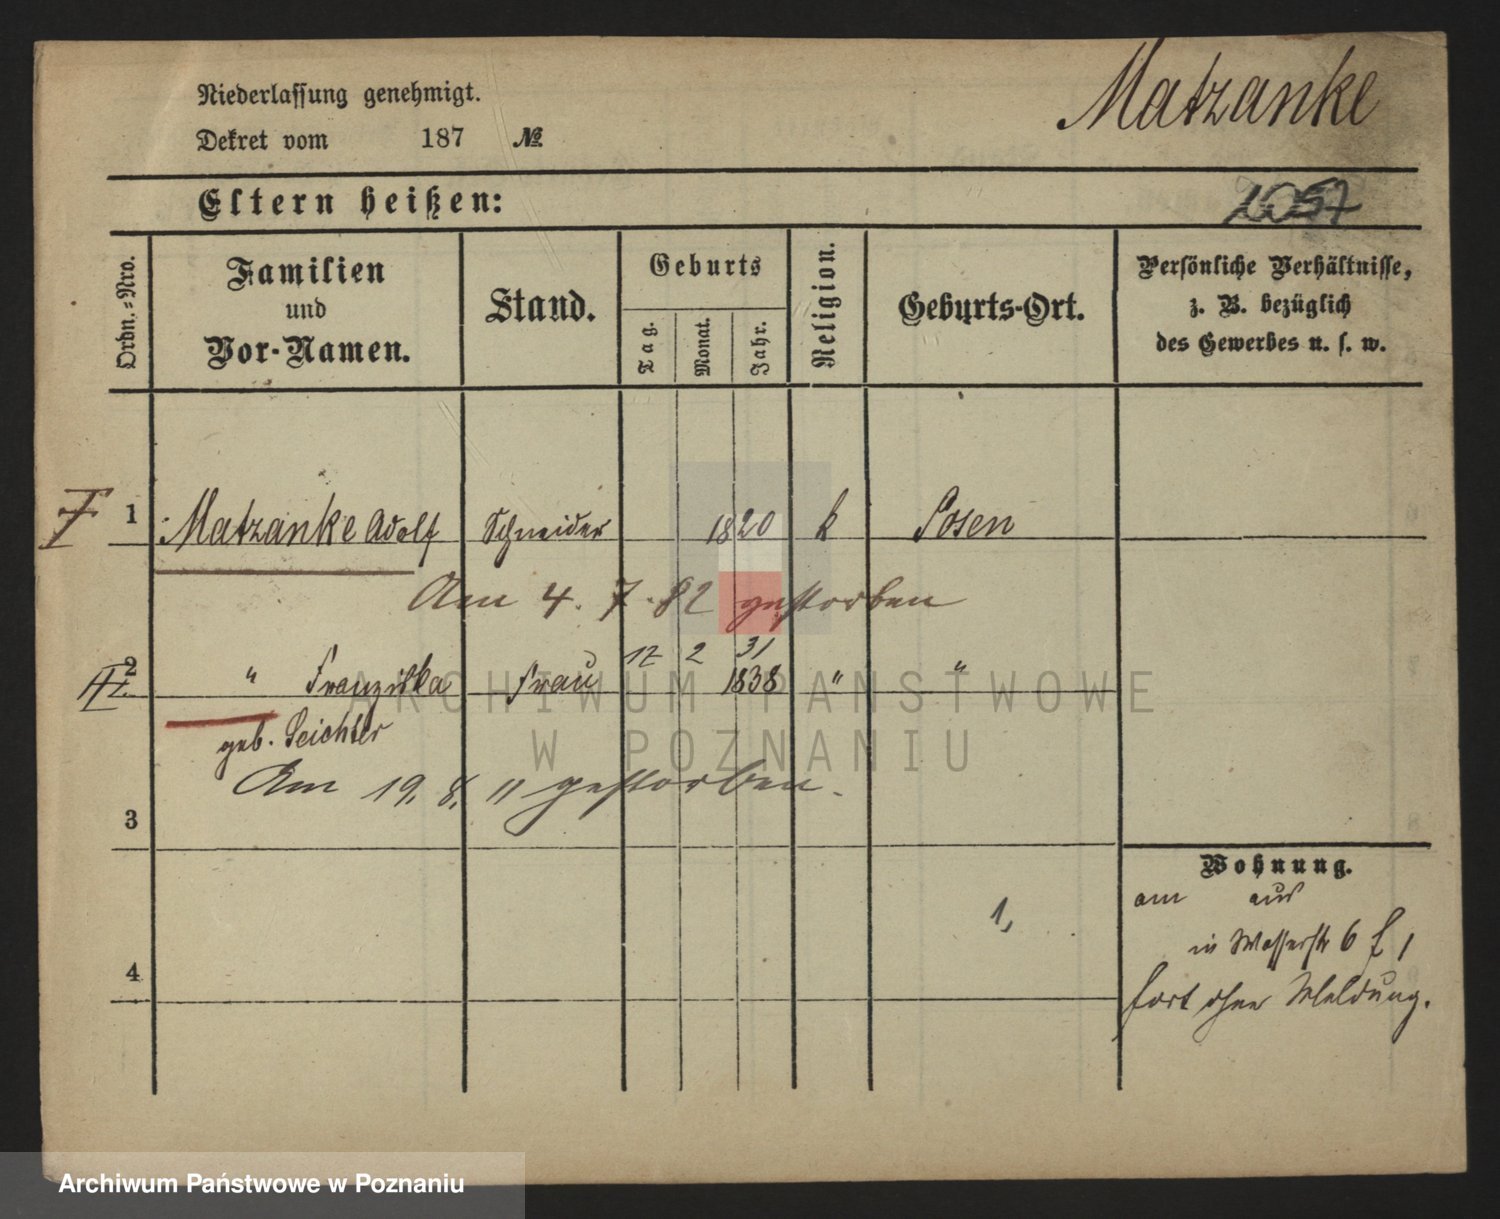 Matzanke
Niederlassung genehmigt.
Dekret vom 187 №
Eltern heißen:
2057
Ordn.-Nro.
Familien
und
Vor-Namen.
Stand.
Geburts
Tag.
Monat.
Jahr.
Religion.
Geburts-Ort.
Persönliche Verhältnisse,
z. B. bezüglich
des Gewerbes u. s. w.
1 Matzanke Adolf Schneider 1820 k Posen
Am 4. 7. 82 gestorben
17 2 31
2 " Franziska Frau 1838 " "
geb. Leichter
Am 19. 8. 11 gestorben.
3
Wohnung.
am aus
1,
in Wasserstr 6 f 1
4
fort ohne Meldung.
ARCHIWUM PAŃSTWOWE
W POZNANIU
Archiwum Państwowe w Poznaniu